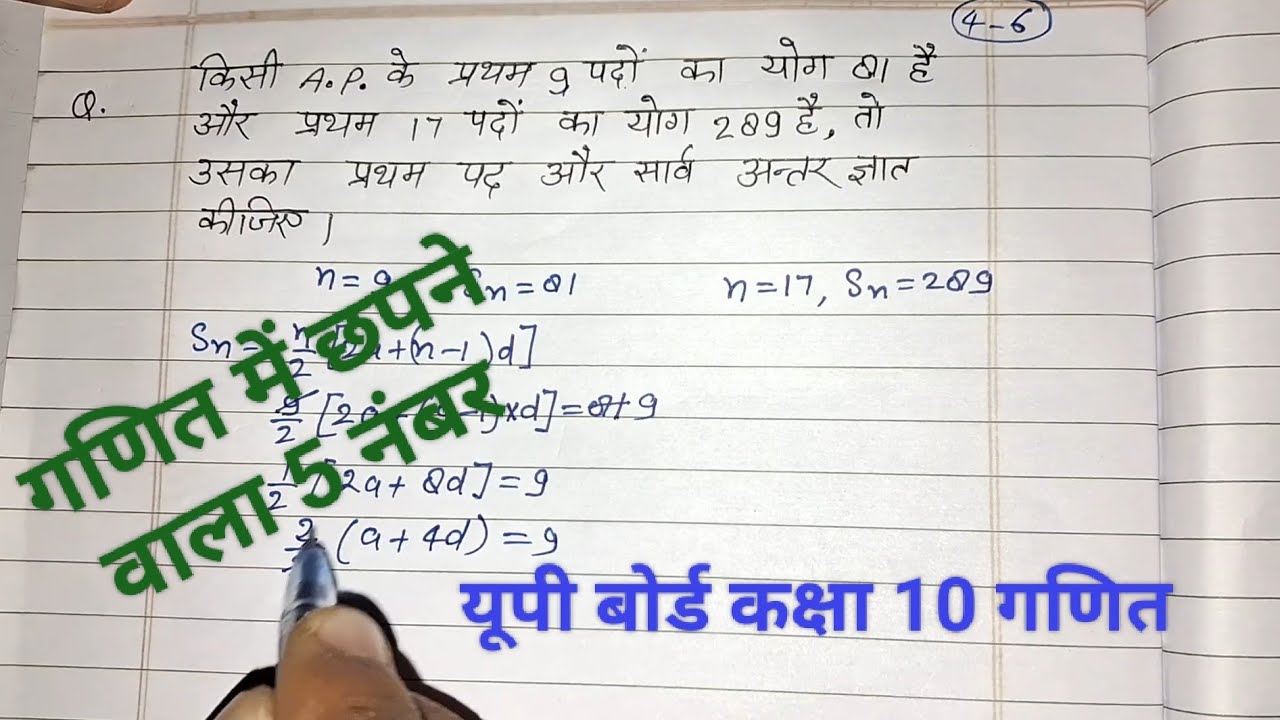 4-6
Q. किसी A.P. के प्रथम 9 पदों का योग 81 है
और प्रथम 17 पदों का योग 289 है, तो
उसका प्रथम पद और सार्व अन्तर ज्ञात
कीजिए ।
n = 9 Sn = 81 n = 17, Sn = 289
Sn = n/2 [2a + (n-1)d]
9/2 [2a + (9-1)×d] = 81 9
1/2 [2a + 8d] = 9
2/2 (a + 4d) = 9
गणित में छपने
वाला 5 नंबर
यूपी बोर्ड कक्षा 10 गणित